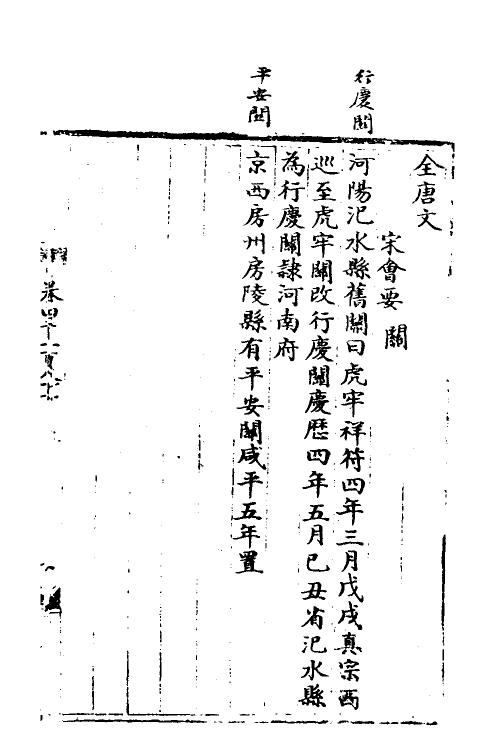 行慶關
平安關
全唐文
宋會要 關
河陽汜水縣舊關曰虎牢祥符四年三月戊戌真宗西
巡至虎牢關改行慶關慶歷四年五月己丑省汜水縣
為行慶關隷河南府
京西房州房陵縣有平安關咸平五年置